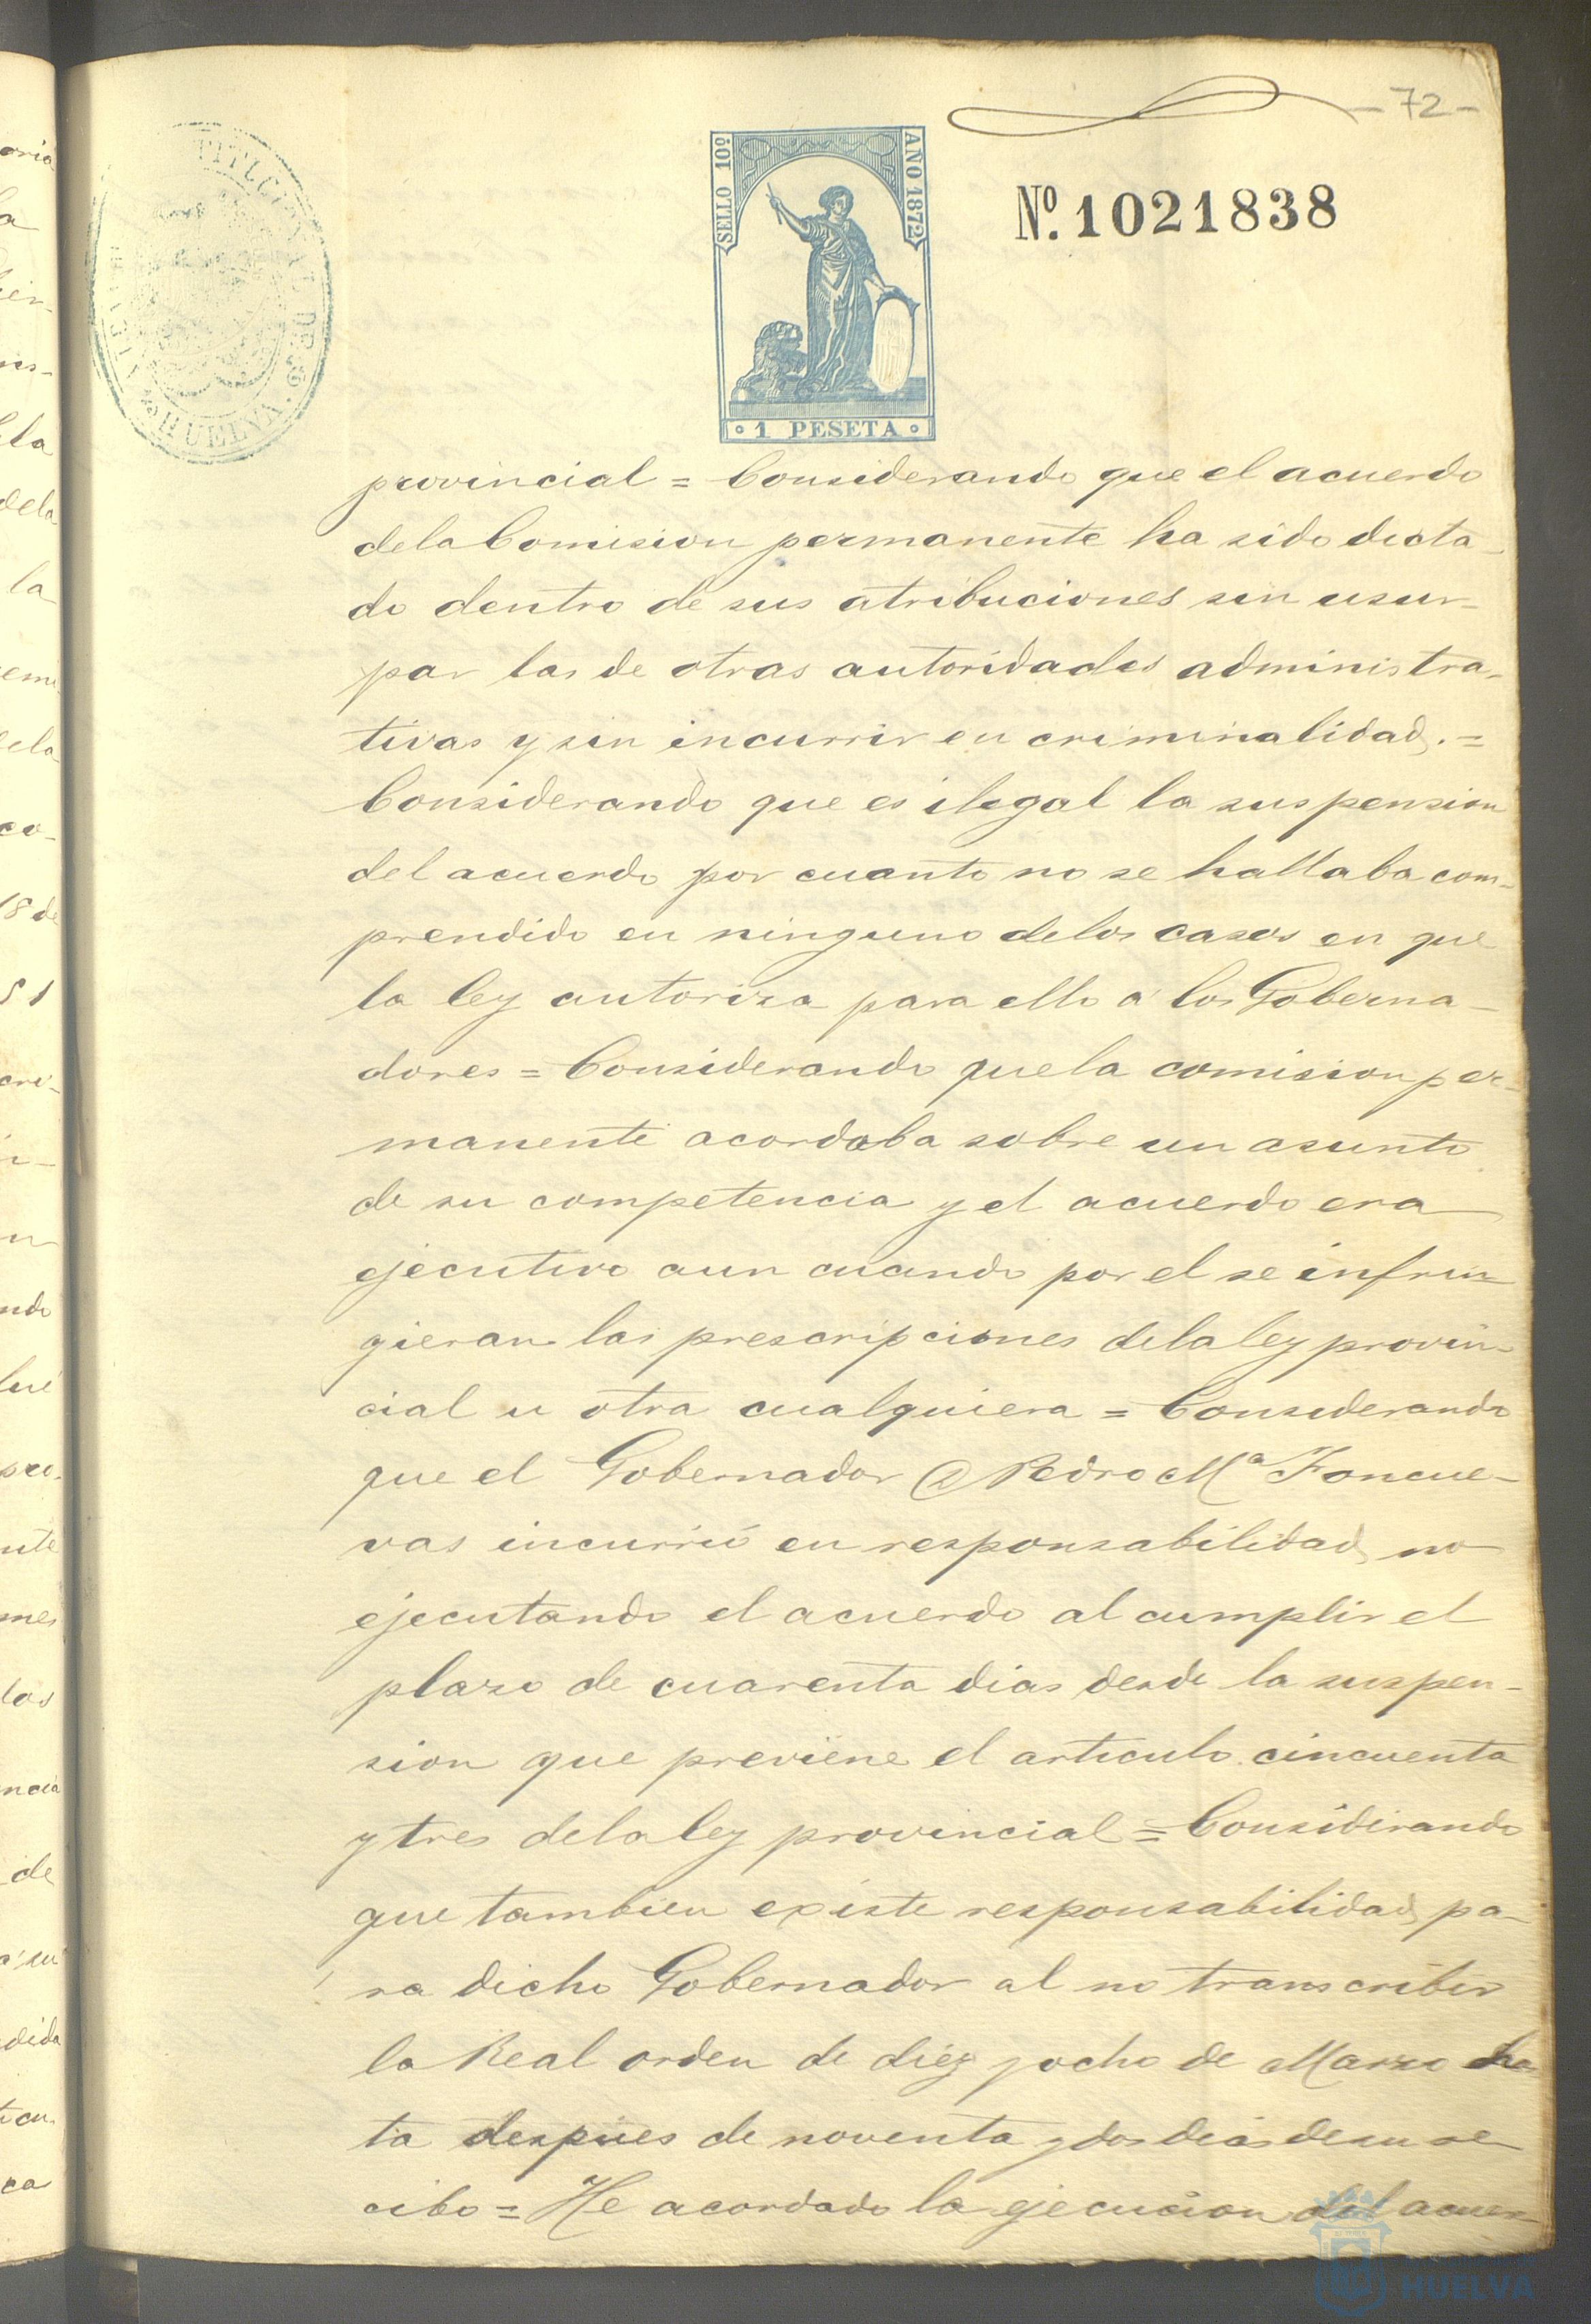 -72-
SELLO 10º
AÑO 1872
Nº. 1021838
HUELVA
1 PESETA
provincial = Considerando que el acuerdo
dela Comision permanente ha sido dicta-
do dentro de sus atribuciones sin usur-
par las de otras autoridades administra-
tivas y sin incurrir en criminalidad. =
Considerando que es ilegal la suspension
del acuerdo por cuanto no se hallaba com-
prendido en ninguno delos casos en que
la ley autoriza para ello á los Goberna-
dores = Considerando quela comision per-
manente acordaba sobre un asunto
de su competencia y el acuerdo era
ejecutivo aun cuando por el se infrin-
gieran las prescripciones dela ley provin-
cial u otra cualquiera = Considerando
que el Gobernador D Pedro Mª Foncue-
vas incurrió en responsabilidad no
ejecutando el acuerdo al cumplir el
plazo de cuarenta dias desde la suspen-
sion que previene el articulo cincuenta
y tres dela ley provincial = Considerando
que tambien existe responsabilidad pa-
ra dicho Gobernador al no transcribir
la Real orden de diez y ocho de Marzo
ta despues de noventa y dos dias de su re
cibo = He acordado la ejecucion del acuer-
HUELVA